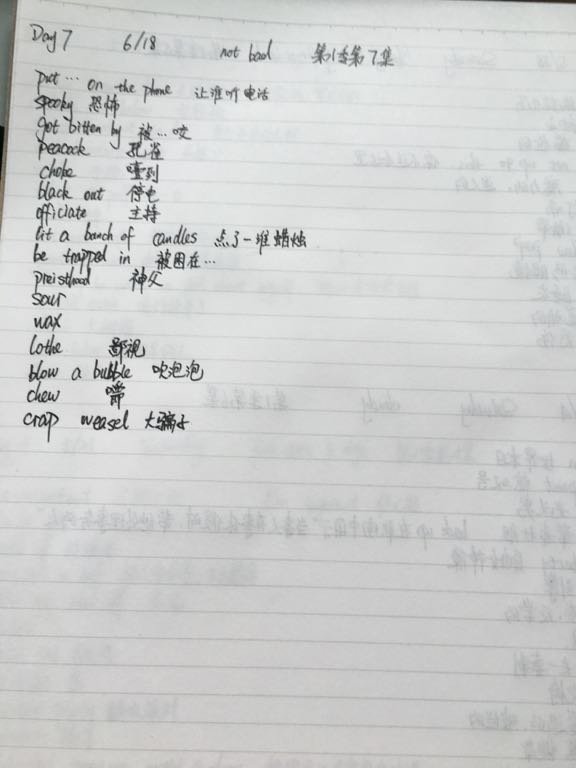 Day 7 6/18 not bad 第1季第7集
put … on the phone 让谁听电话
spooky 恐怖
got bitten by 被…咬
peacock 孔雀
choke 噎到
black out 停电
officiate 主持
lit a bunch of candles 点了一堆蜡烛
be trapped in 被困在…
preisthood 神父
sour
wax
lothe 鄙视
blow a bubble 吹泡泡
chew 嚼
crap weasel 大骗子